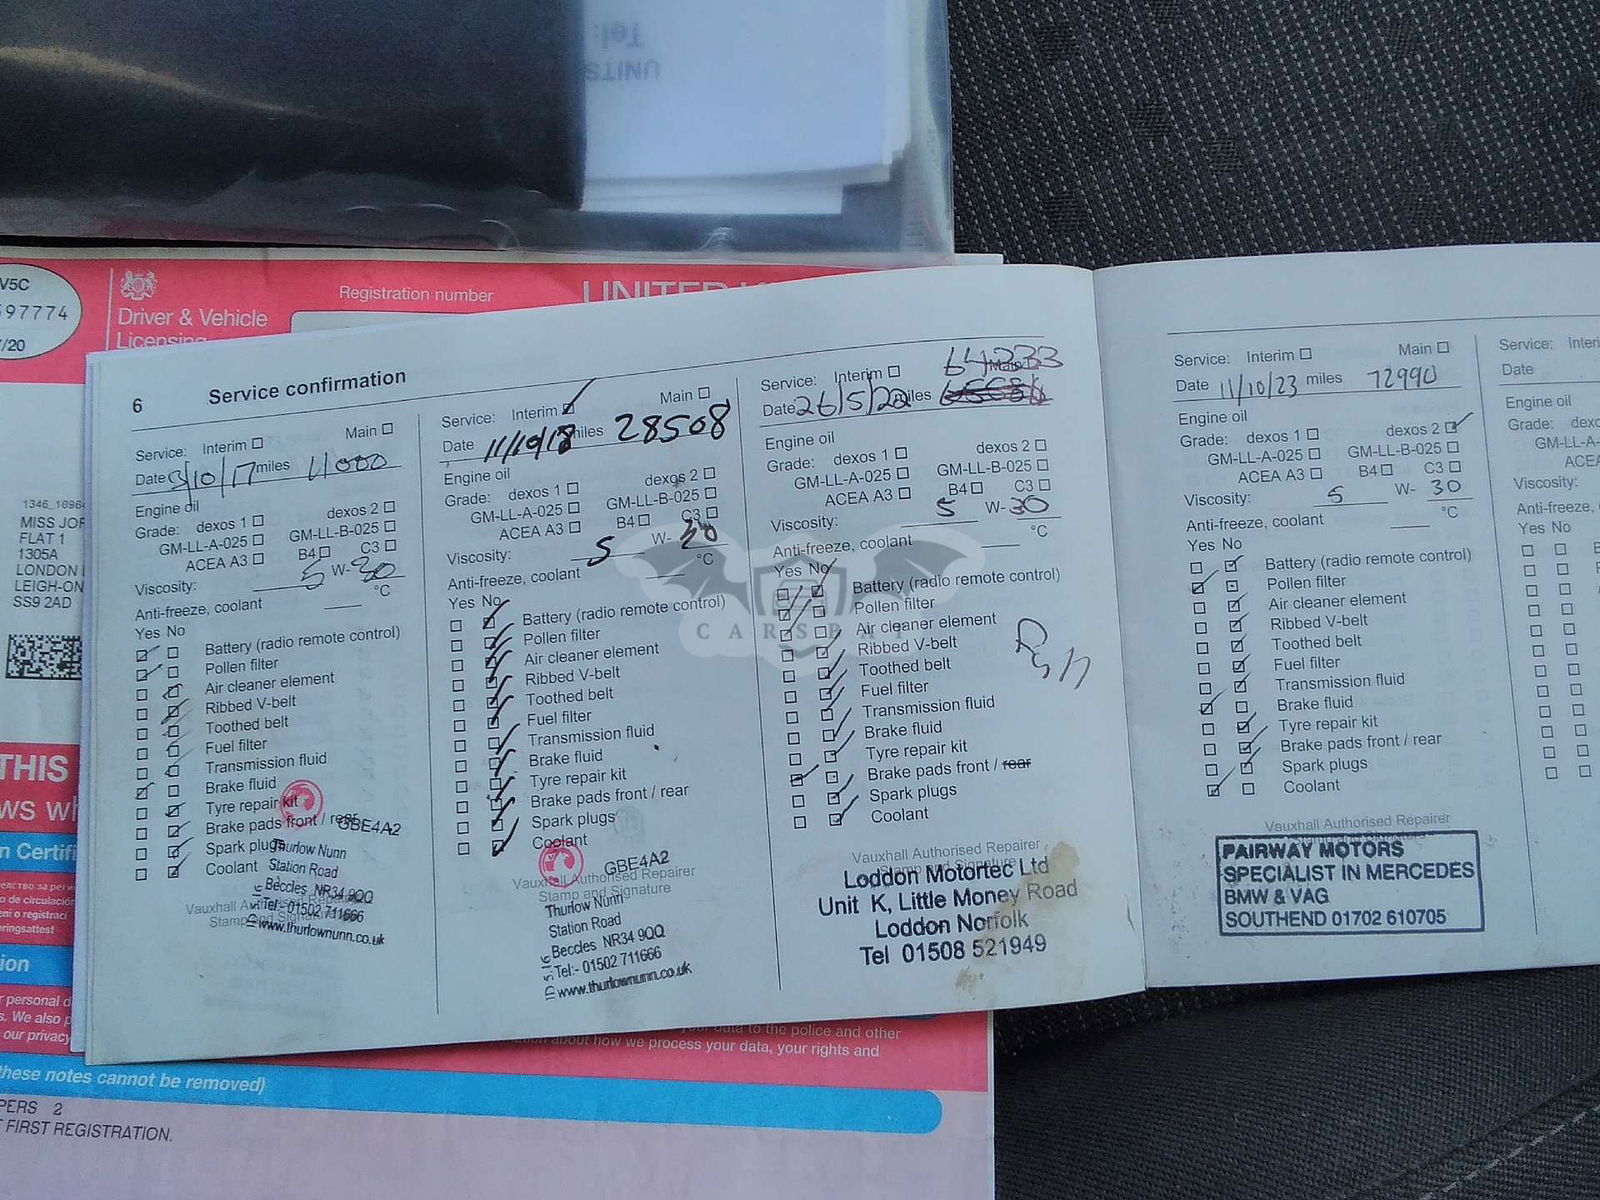 Tel:
UNITS
V5C
597774
/20
Driver & Vehicle
Licensing
Registration number
1346_1096
MISS JOR
FLAT 1
1305A
LONDON
LEIGH-ON
SS9 2AD
THIS
n Certifi
ion
personal d
s. We also p
our privacy
these notes cannot be removed)
PERS 2
FIRST REGISTRATION.
your data to the police and other
about how we process your data, your rights and
6
Service confirmation
Service: Interim Main
Date 3/10/17 miles 11000
Engine oil
Grade: dexos 1 dexos 2
GM-LL-A-025 GM-LL-B-025
ACEA A3 B4 C3
Viscosity: 5 W- 30
Anti-freeze, coolant °C
Yes No
Battery (radio remote control)
Pollen filter
Air cleaner element
Ribbed V-belt
Toothed belt
Fuel filter
Transmission fluid
Brake fluid
Tyre repair kit
Brake pads front / rear
Spark plugs
Coolant
GBE4A2
Thurlow Nunn
Station Road
Beccles NR34 9QQ
Tel:- 01502 711666
www.thurlownunn.co.uk
Service: Interim Main
Date 11/10/18 miles 28508
Engine oil
Grade: dexos 1 dexos 2
GM-LL-A-025 GM-LL-B-025
ACEA A3 B4 C3
Viscosity: 5 W- 30
Anti-freeze, coolant °C
Yes No
Battery (radio remote control)
Pollen filter
Air cleaner element
Ribbed V-belt
Toothed belt
Fuel filter
Transmission fluid
Brake fluid
Tyre repair kit
Brake pads front / rear
Spark plugs
Coolant
GBE4A2
Vauxhall Authorised Repairer
Stamp and Signature
Thurlow Nunn
Station Road
Beccles NR34 9QQ
Tel:- 01502 711666
www.thurlownunn.co.uk
64233
Service: Interim Main
Date 26/5/22 miles
Engine oil
Grade: dexos 1 dexos 2
GM-LL-A-025 GM-LL-B-025
ACEA A3 B4 C3
Viscosity: 5 W- 30
Anti-freeze, coolant °C
Yes No
Battery (radio remote control)
Pollen filter
Air cleaner element
Ribbed V-belt
Toothed belt
Fuel filter
Transmission fluid
Brake fluid
Tyre repair kit
Brake pads front / rear
Spark plugs
Coolant
Vauxhall Authorised Repairer
Stamp and Signature
Loddon Motortec Ltd
Unit K, Little Money Road
Loddon Norfolk
Tel 01508 521949
CARSBAT
Service: Interim Main
Date 11/10/23 miles 72990
Engine oil
Grade: dexos 1 dexos 2
GM-LL-A-025 GM-LL-B-025
ACEA A3 B4 C3
Viscosity: 5 W- 30
Anti-freeze, coolant °C
Yes No
Battery (radio remote control)
Pollen filter
Air cleaner element
Ribbed V-belt
Toothed belt
Fuel filter
Transmission fluid
Brake fluid
Tyre repair kit
Brake pads front / rear
Spark plugs
Coolant
Vauxhall Authorised Repairer
PAIRWAY MOTORS
SPECIALIST IN MERCEDES
BMW & VAG
SOUTHEND 01702 610705
Service: Interi
Date
Engine oil
Grade: dexo
GM-LL-A-
ACEA
Viscosity:
Anti-freeze,
Yes No